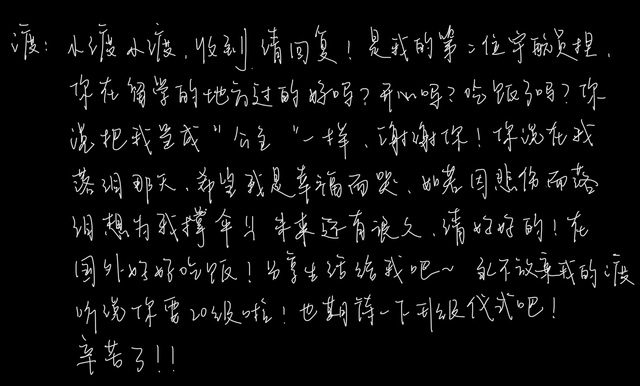 渡：小渡小渡，收到请回复！是我的第二位宇航员捏，
你在留学的地方过的好吗？开心吗？吃饭了吗？你
说把我当成“公主”一样，谢谢你！你说在我
落泪那天，希望我是幸福而哭，如若因悲伤而落
泪想为我撑伞！！未来还有很久，请好好的！在
国外好好吃饭！分享生活给我吧~ 永不放弃我的渡
听说你要20级啦！也期待一下升级仪式吧！
辛苦了!!!